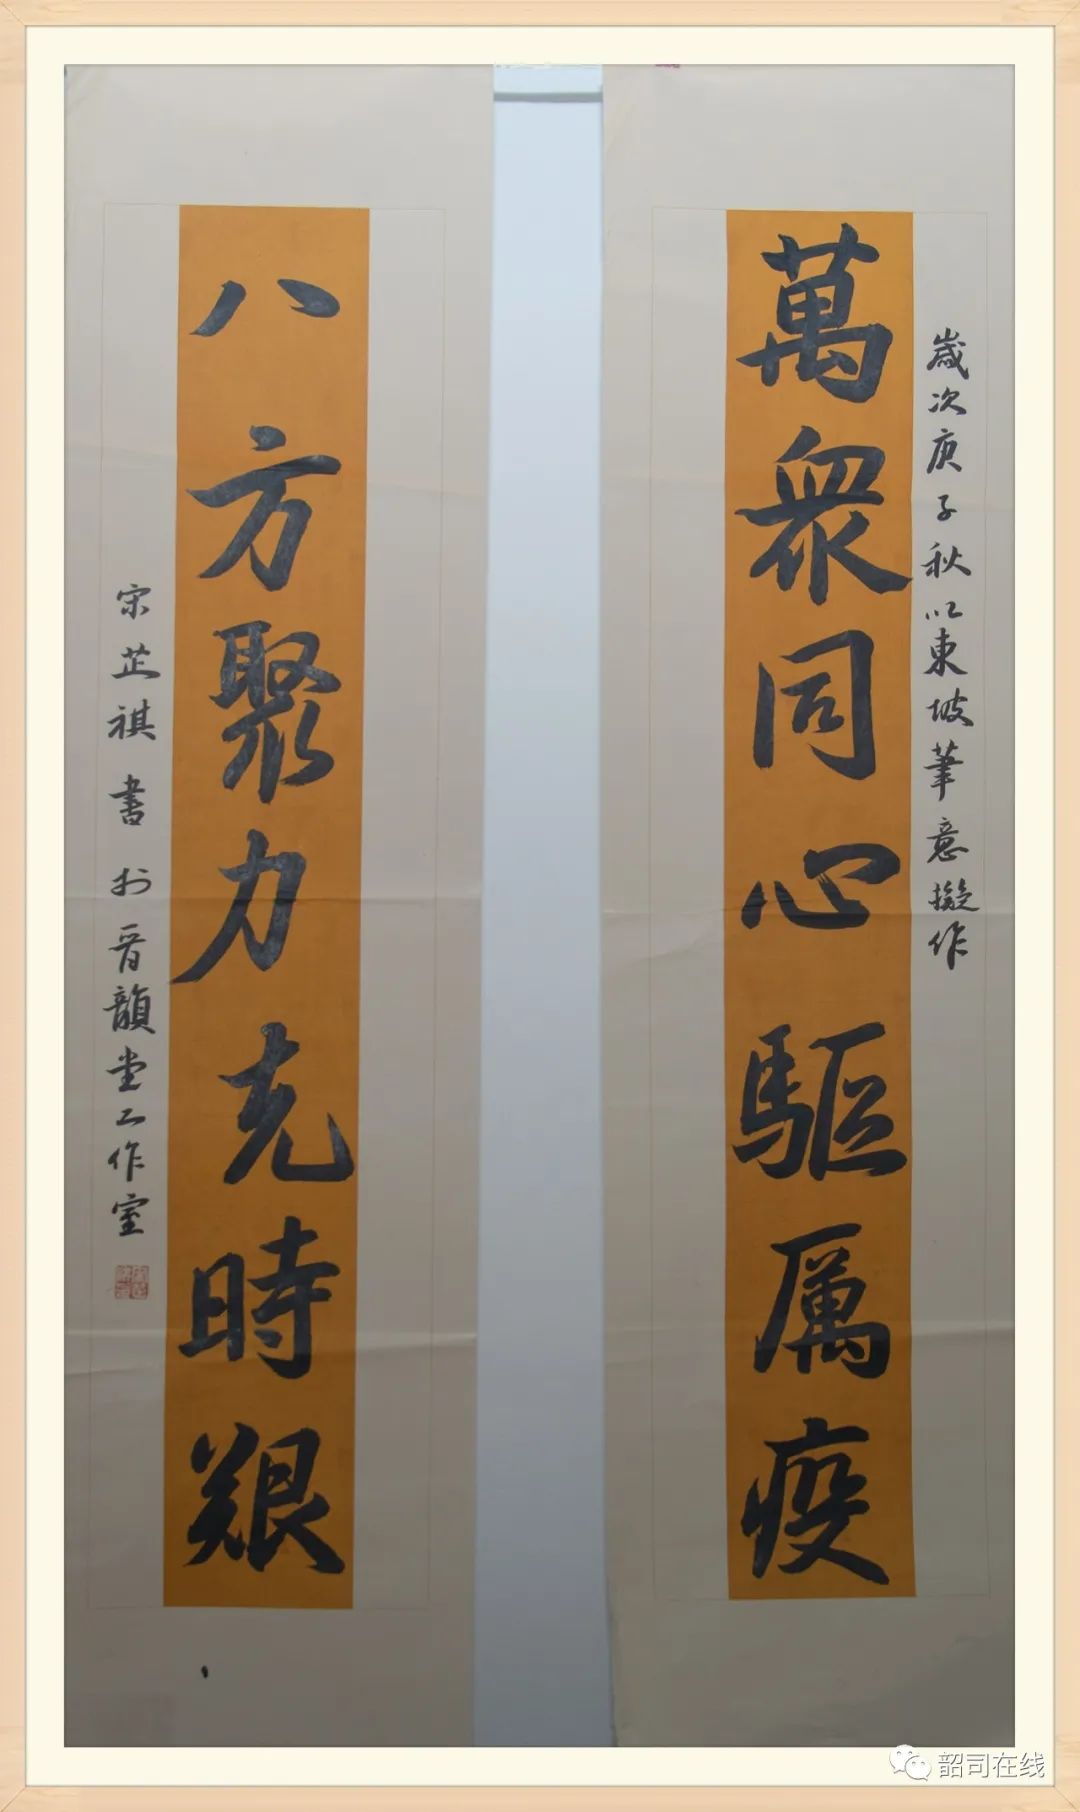 歲次庚子秋以東坡筆意擬作
萬衆同心驅厲疫
八方聚力克時艱
宋芷祺書於晋韻堂工作室
韶司在线